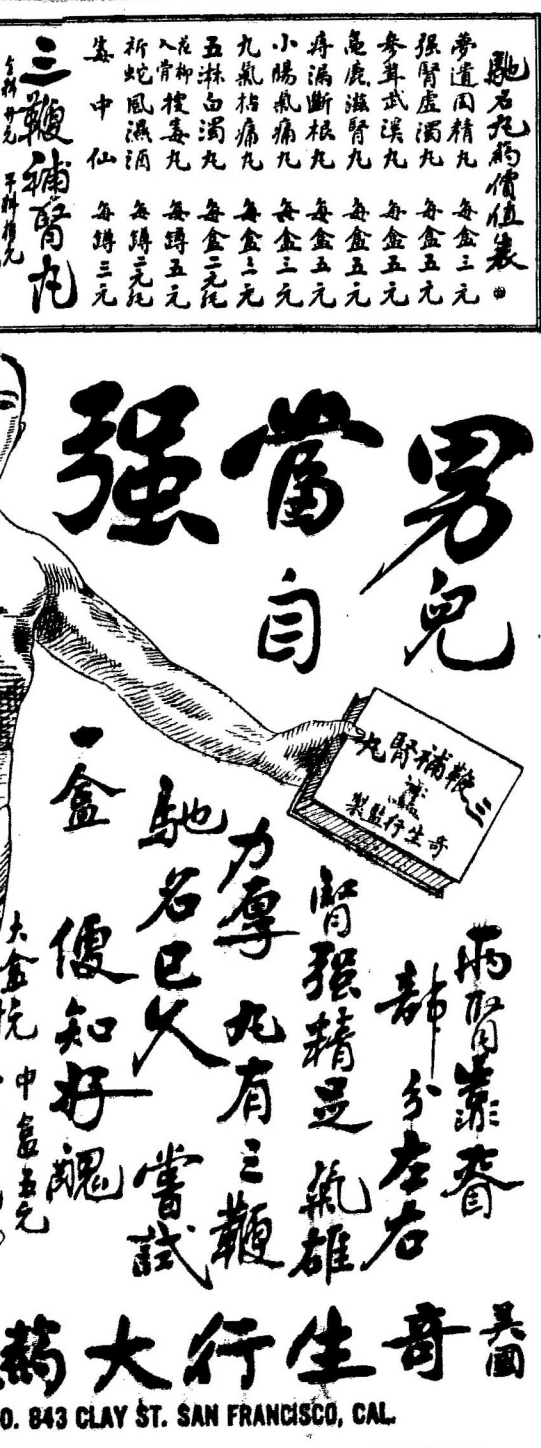 馳名丸藥價值表
夢遺固精丸 每盒三元
强腎虛濁丸 每盒五元
參茸武漢丸 每盒五元
龜鹿滋腎丸 每盒五元
痔漏斷根丸 每盒五元
小腸氣痛丸 每盒三元
九氣拈痛丸 每盒二元
五淋白濁丸 每盒二元
花柳入骨搜毒丸 每罇五元
祈蛇風濕酒 每罇二元
中仙 每罇三元
三鞭補腎丸
男兒
當自
强
三鞭補腎丸
奇生行監製
兩腎
部分左右
腎强精足 氣雄
力厚 丸有三鞭
馳名已久 嘗試
一盒 便知好醜
中盒五元
美國
奇生行大藥
O. 843 CLAY ST. SAN FRANCISCO, CAL.